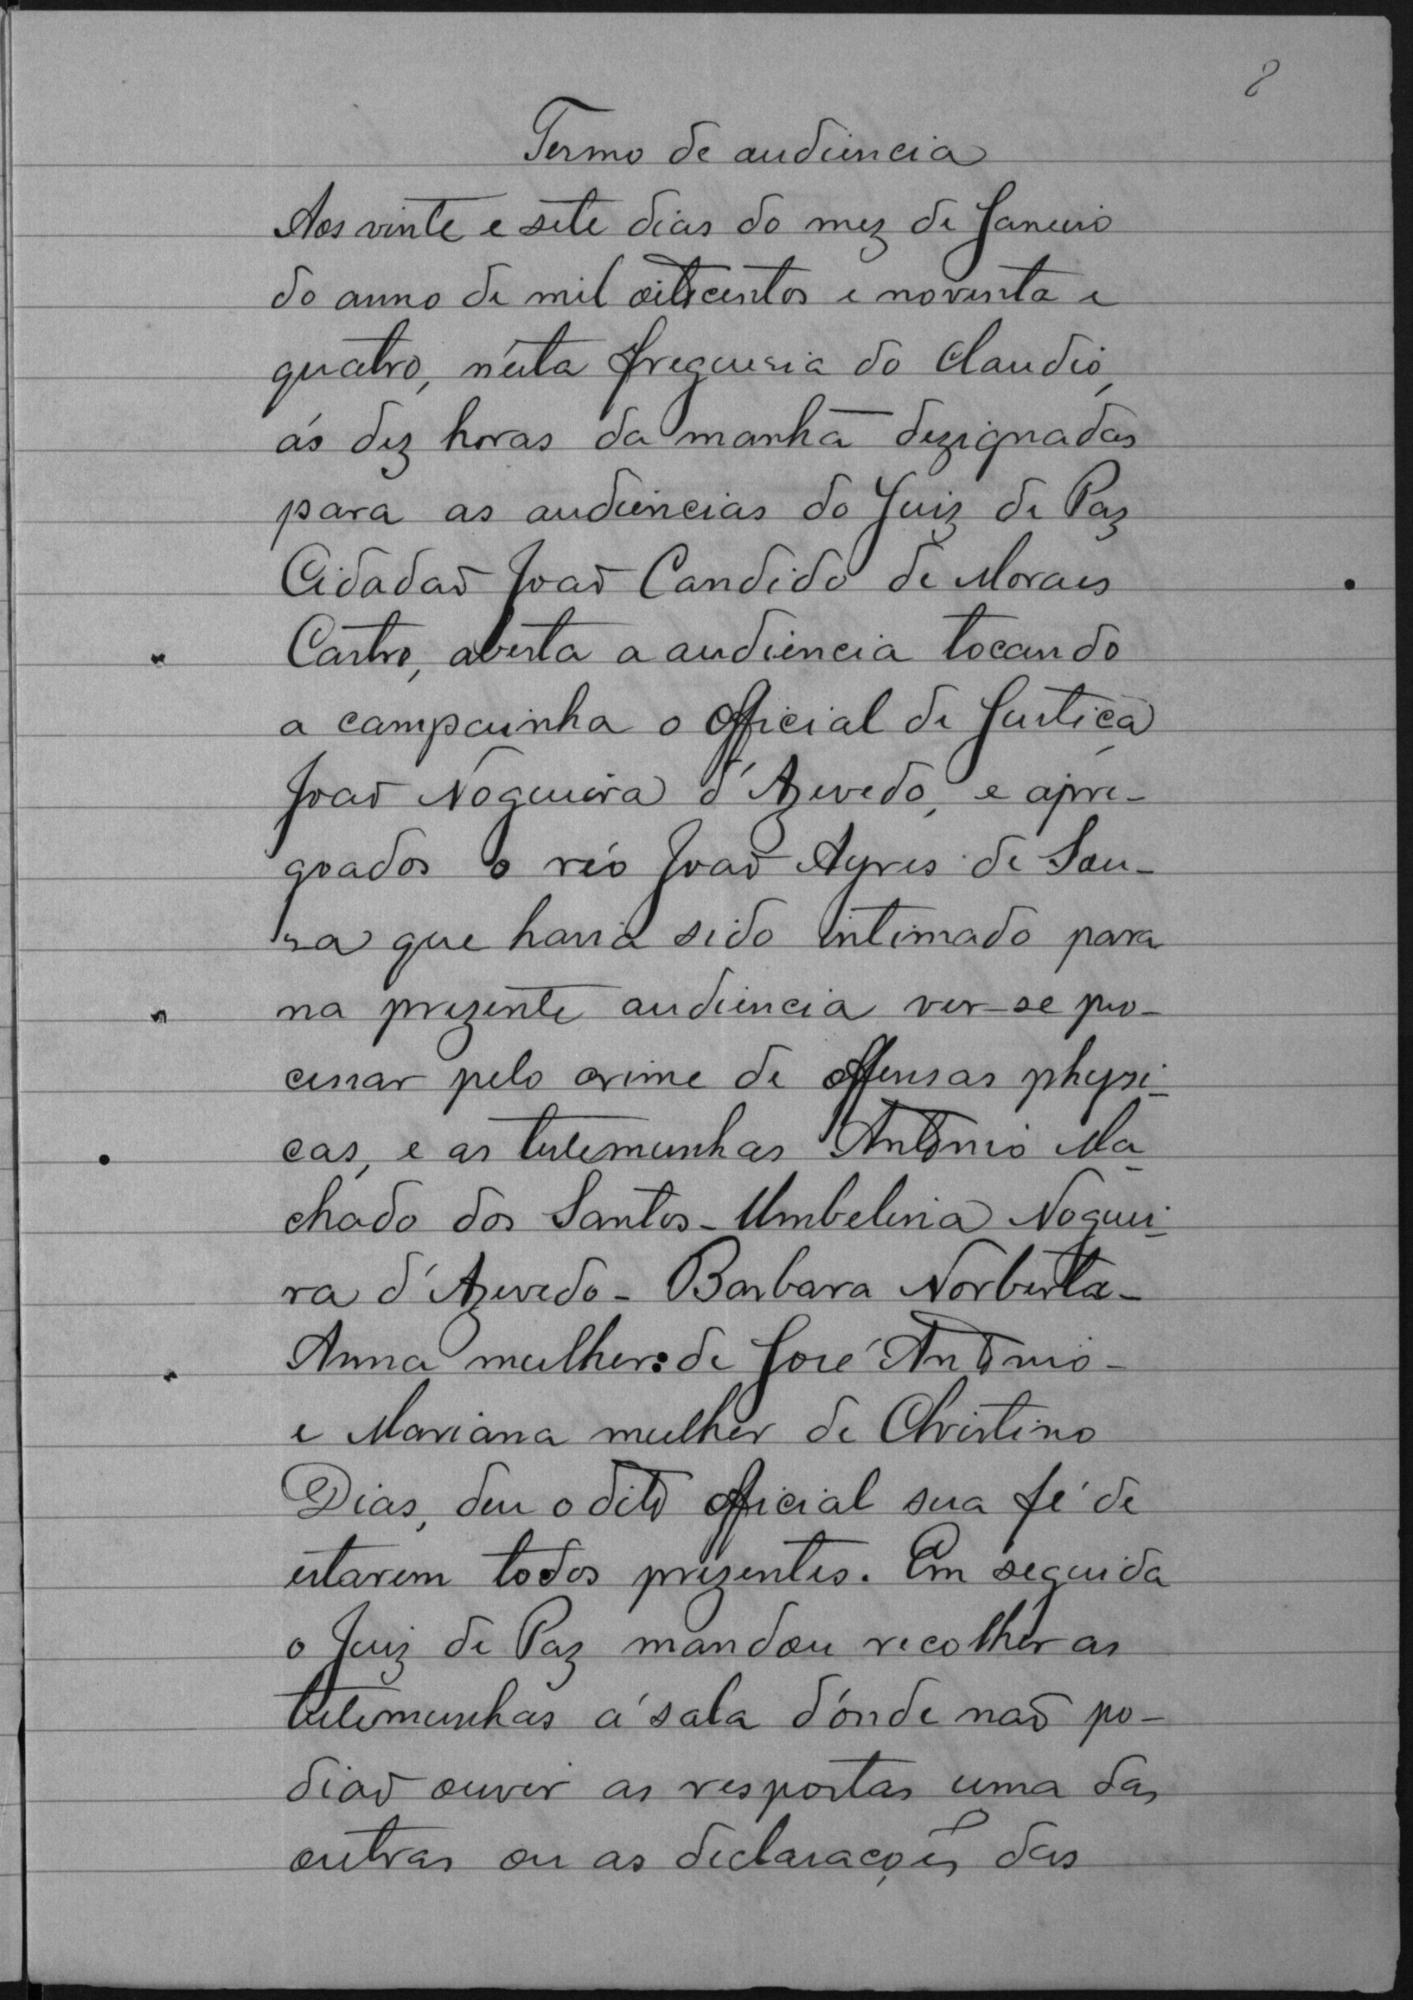 8
Termo de audiencia
Aos vinte e sete dias do mez de Janeiro
do anno de mil oitocentos e noventa e
quatro, n'esta freguesia do Claudio,
ás dez horas da manhã dezignadas
para as audiencias do Juiz de Paz
Cidadaõ Joaõ Candido de Moraes
Castro, aberta a audiencia tocando
a campainha o Official de Justiça
Joaõ Nogueira d'Azevedo, e apre-
goados o réo Joaõ Ayres de Sou-
sa que havia sido intimado para
na prezente audiencia ver-se pro-
cessar pelo crime de offensas physi-
cas, e as testemunhas Antonio Ma-
chado dos Santos - Umbelina Noguei-
ra d'Azevedo - Barbara Norberta -
Anna mulher de José Antonio -
e Mariana mulher de Christino
Dias, deu o dito official sua fé de
estarem todos prezentes. Em seguida
o Juiz de Paz mandou recolher as
testemunhas á sala d'onde naõ po-
diaõ ouvir as respostas uma das
outras ou as declarações das